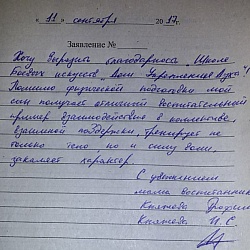 « 11 » сентября 2017г.
Заявление №
Хочу выразить благодарность "Школе
боевых искусств" или Укрепление Духа"!
Помимо физической подготовки мой
сын получает отличный воспитательный
пример взаимодействия в коллективе,
взаимной поддержки, тренирует не
только тело но и силу воли,
закаляет характер.
С уважением
мама воспитанника
Князева
Князева И.С.